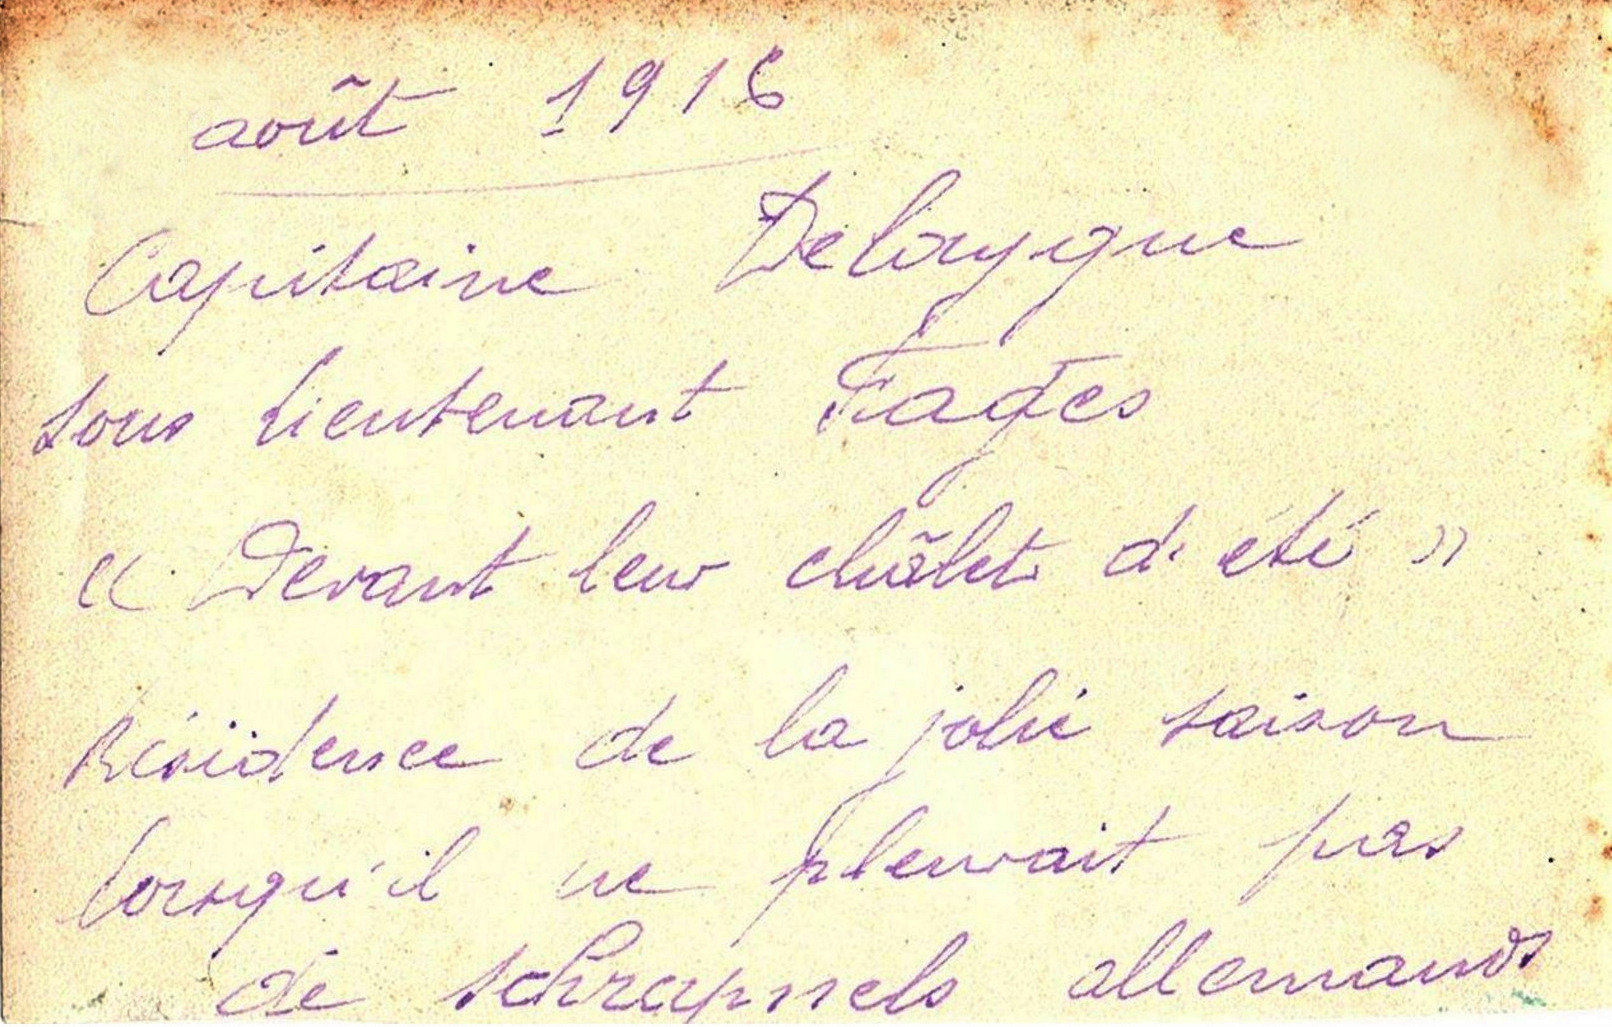 août 1916
Capitaine Delaygue
sous lieutenant Fages
« Devant leur châlet d'été »
Résidence de la jolie saison
lorsqu'il ne pleuvait pas
de schrapnels allemands